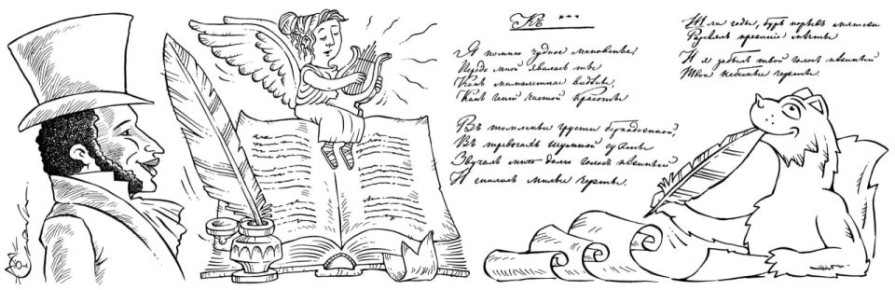 Къ ***
Я помню чудное мгновенье:
Передо мной явилась ты,
Какъ мимолетное видѣнье,
Какъ геній чистой красоты
Въ томленьи грусти безнадежной,
Въ тревогахъ шумной суеты
Звучалъ мнѣ долго голосъ нѣжный
И снились милые черты.
Шли годы, буръ порывъ мятежный
Разсѣялъ прежніе мечты
И я забылъ твой голосъ нѣжный
Твои небесные черты.